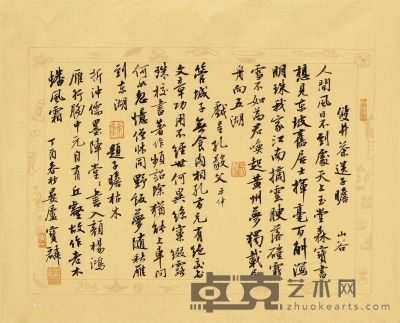 雙井茶送子瞻 山谷
人間風日不到處天上玉堂森寶書
想見東坡舊居士揮毫百斛瀉
明珠我家江南摘雲腴落磑霏
雪不如為君喚起黃州夢獨載扁
舟向五湖
戲呈孔毅父
管城子無食肉相孔方兄有絕交書
文章功用不經世何異絲窠綴露
珠校書著作頻詔除猶能上車問
何如忽憶僧床同野飯夢隨秋雁
到東湖 題子瞻枯木
折沖儒墨陣堂堂書入顏楊鴻
雁行胸中元自有丘壑故作老木
蟠風霜 丁酉春杪
卓克艺术网